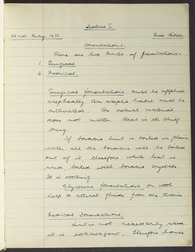 Lecture I.
Fomentations.
There are two kinds of fomentations:-
1. Surgical
2. Medical.
Surgical fomentations must be applied
aseptically. An aseptic habit must be
cultivated. The actual material
does not matter. Heat is the chief
thing.
If boracic lint is boiled in plain
water all the boracic will be boiled
out of it therefore white lint is
boiled with boracic crystals.
Glycerine fomentations
help to attract fluids from the tissues
Medical fomentations.
Lint is not necessarily used
it is expensive. Therefore house